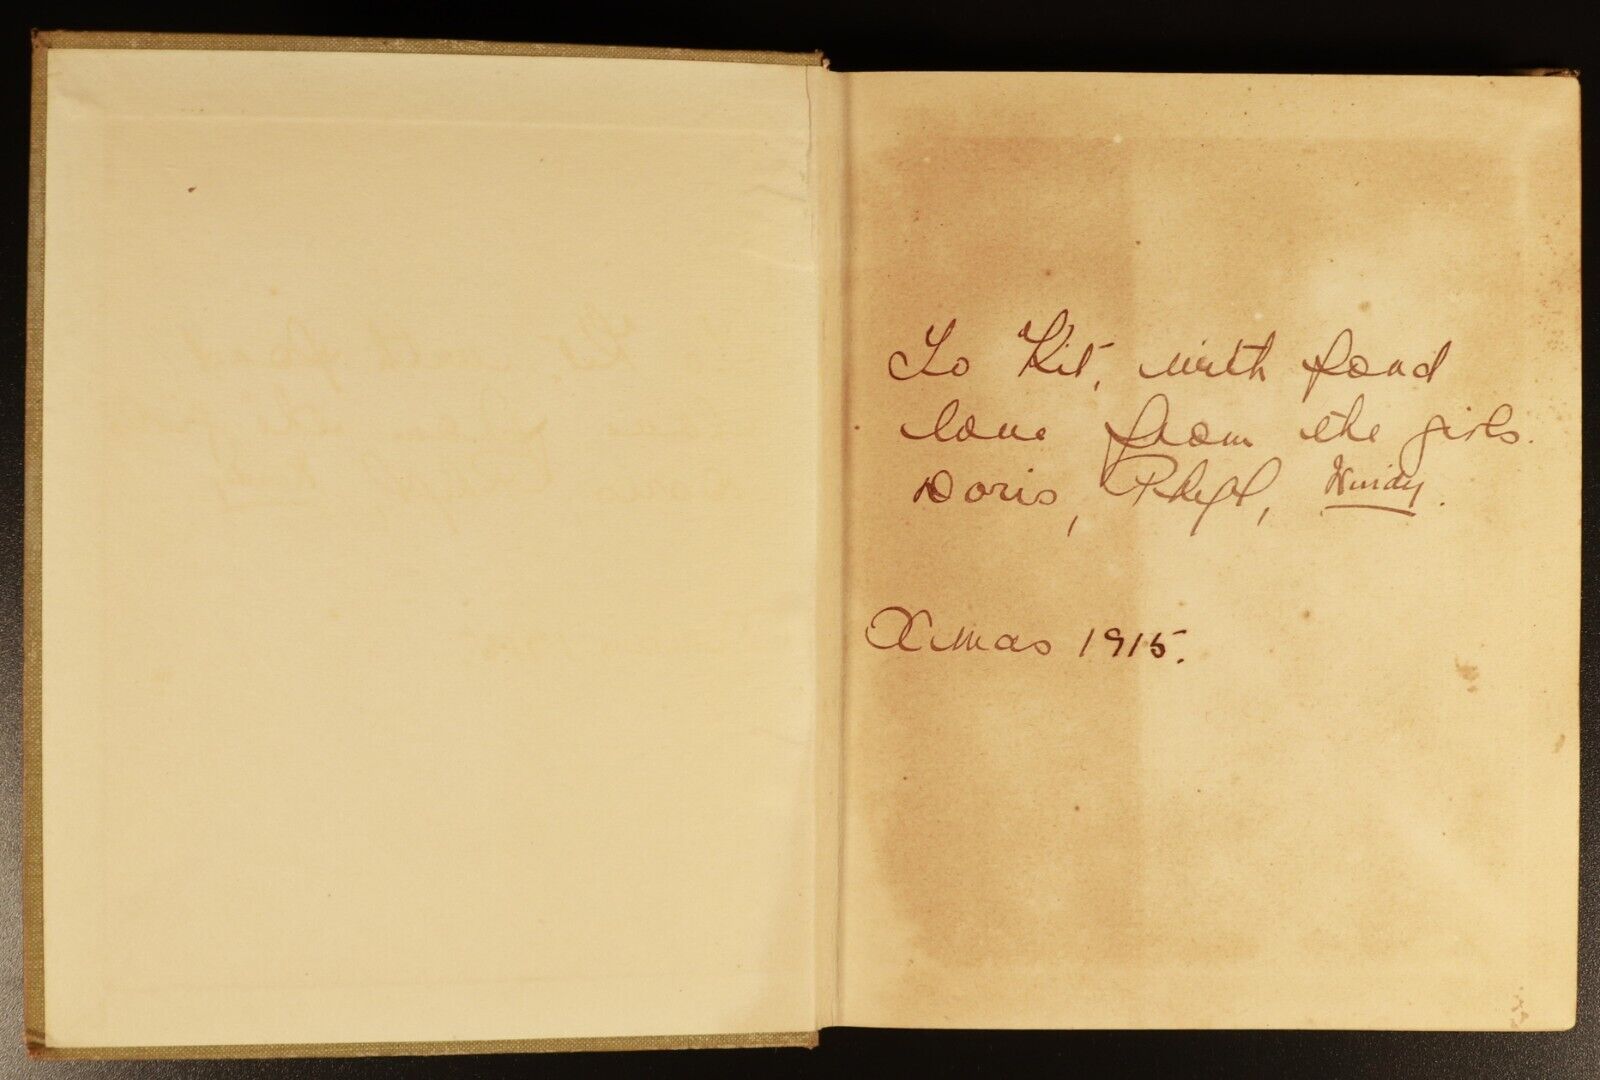 To Kit, with fond
love from the girls.
Doris, , .
Xmas 1915.